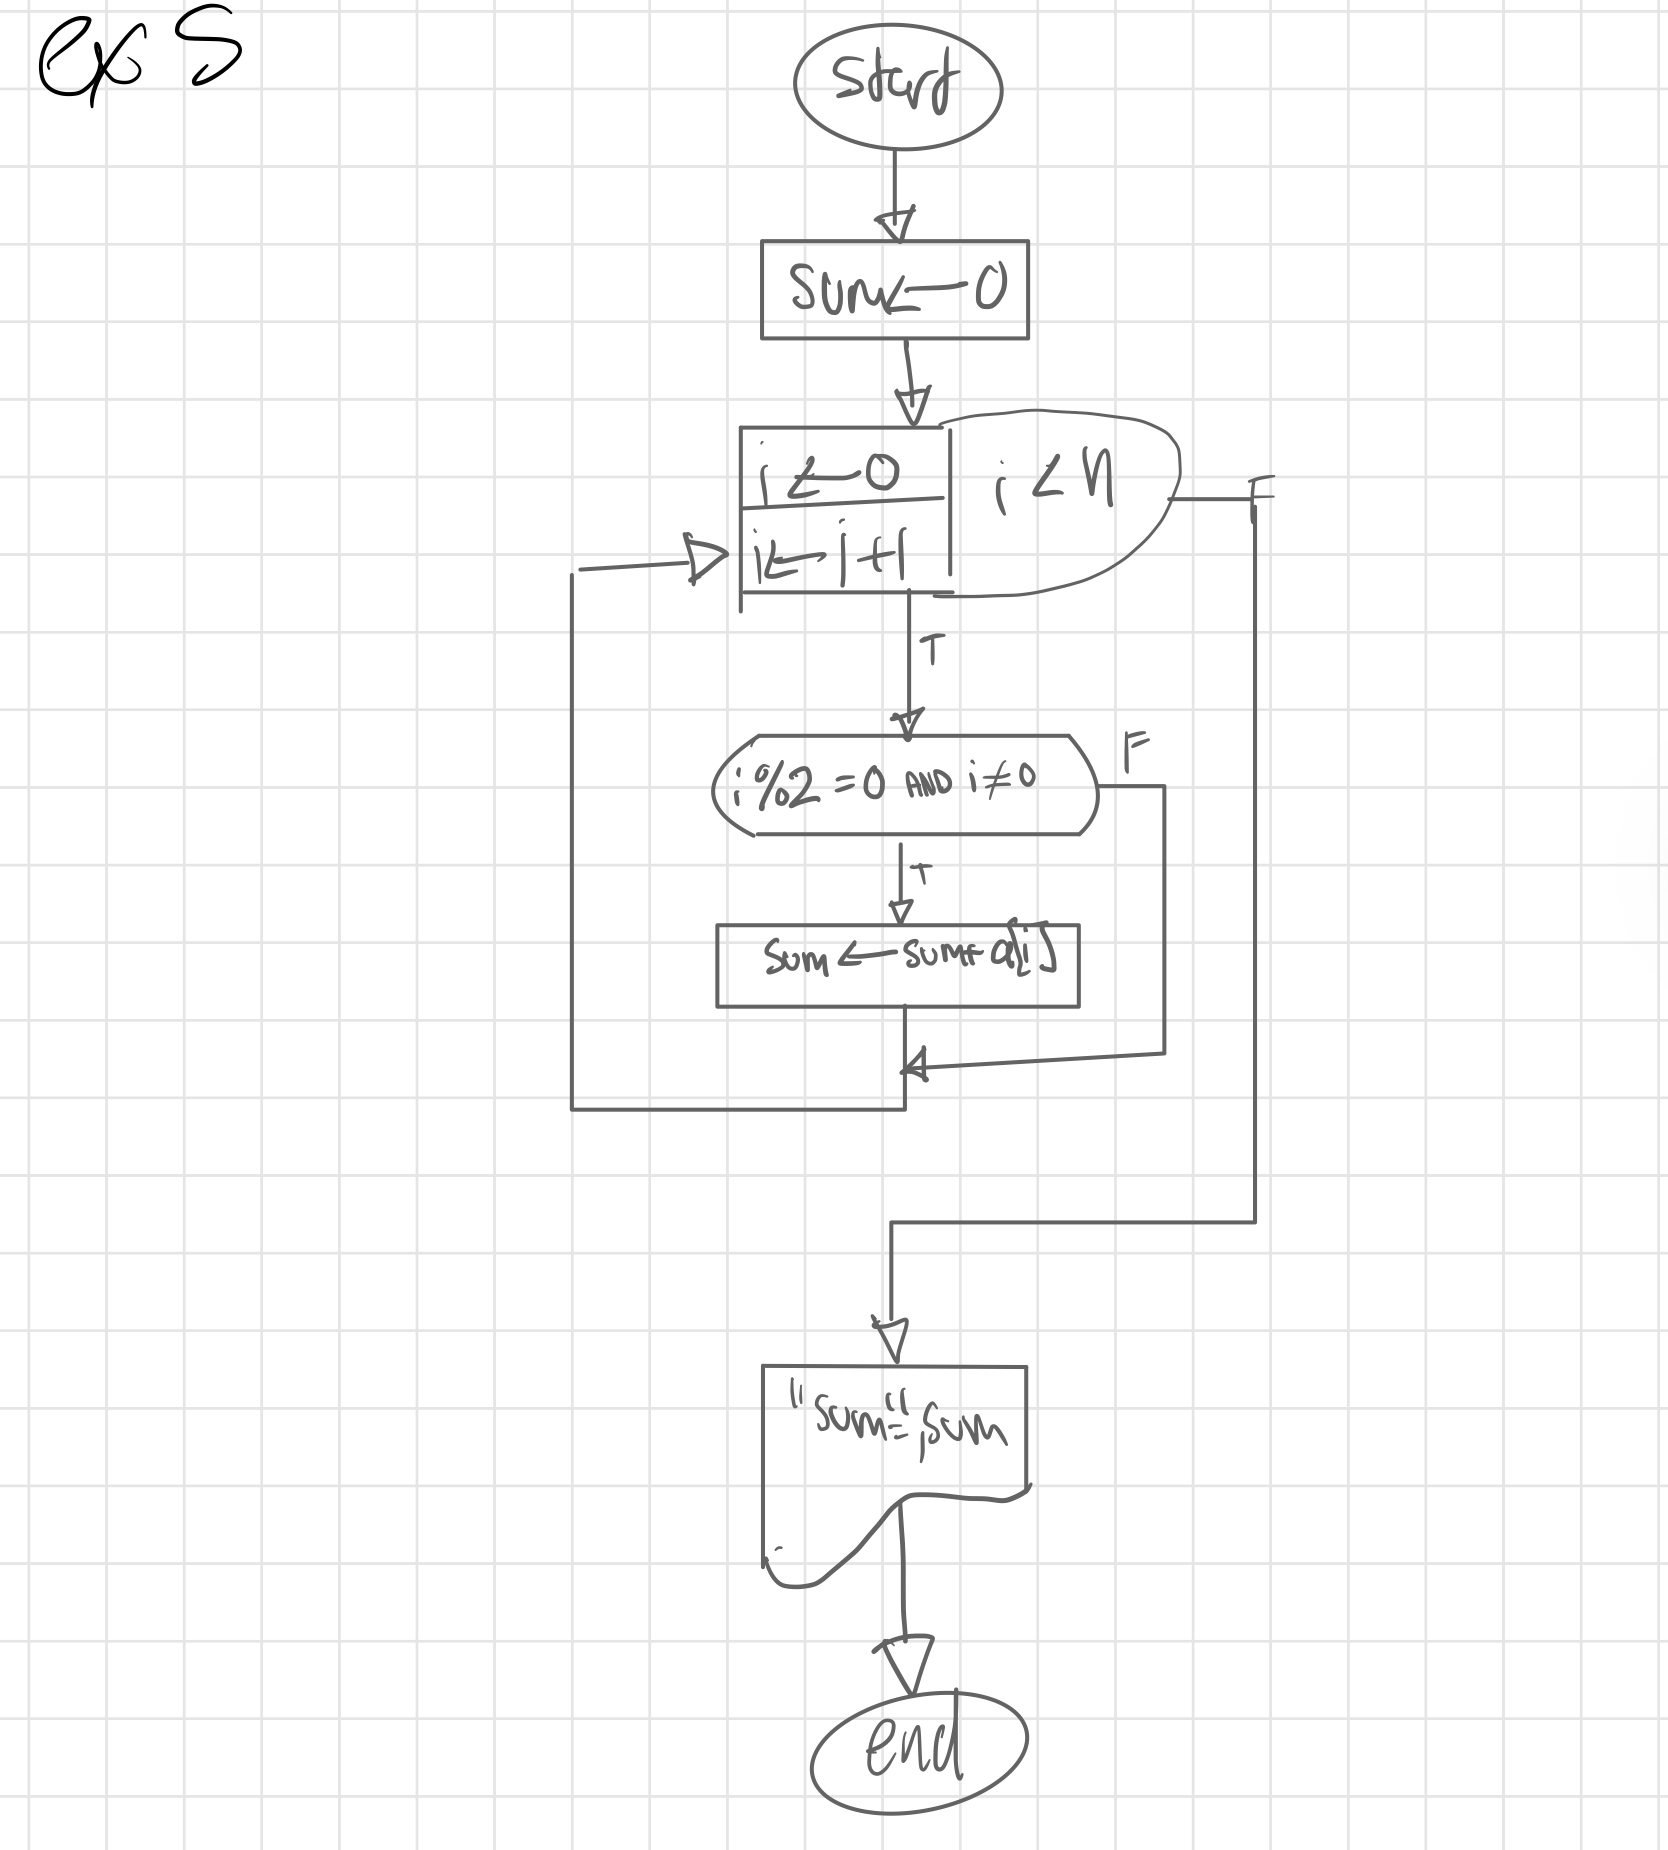 ex 5
start
sum ← 0
i ← 0
i < n
F
i ← i+1
T
F
i%2 = 0 AND i ≠ 0
T
sum ← sum + a[i]
"sum=", sum
end